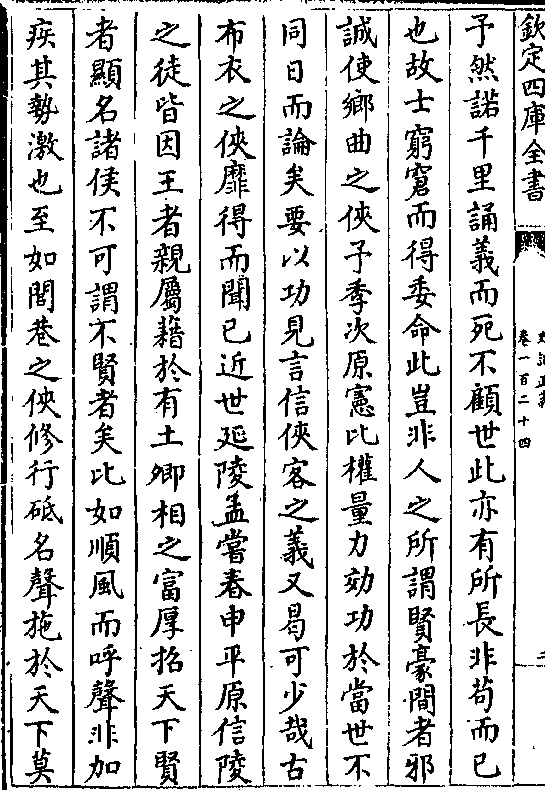 欽定四庫全書
卷一百二十四
予然諾千里誦義而死不顧世此亦有所長非苟而已
也故士窮窘而得委命此豈非人之所謂賢豪間者邪
誠使鄉曲之俠予季次原憲比權量力効功於當世不
同日而論矣要以功見言信俠客之義又曷可少哉古
布衣之俠靡得而聞已近世延陵孟嘗春申平原信陵
之徒皆因王者親屬藉於有土卿相之富厚招天下賢
者顯名諸侯不可謂不賢者矣比如順風而呼聲非加
疾其勢激也至如閭巷之俠修行砥名聲施於天下莫